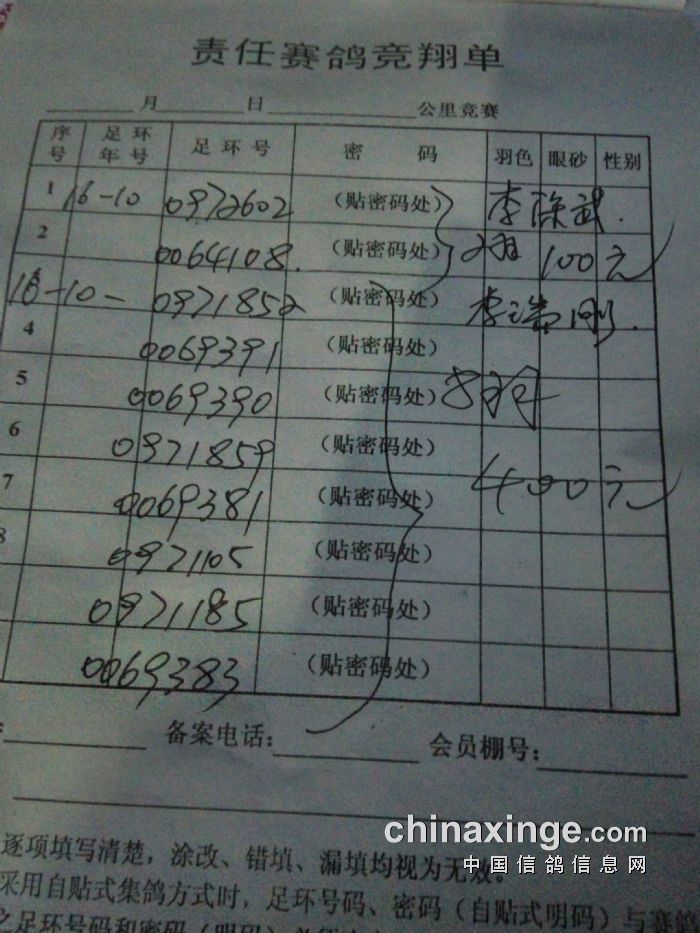 责任赛鸽竞翔单
月 日 公里竞赛
序号 足环年号 足环号 密码 羽色 眼砂 性别
1 16-10 0972602 (贴密码处) 李陈武.
2 0064108. (贴密码处) 2羽 100元
16-10- 0971852 (贴密码处) 李 刚.
4 0069391 (贴密码处)
5 0069390 (贴密码处) 8羽
6 0971859 (贴密码处)
7 0069381 (贴密码处) 400元
8 0971105 (贴密码处)
0971185 (贴密码处)
0069383 (贴密码处)
备案电话: 会员棚号:
chinaxinge.com
中国信鸽信息网
逐项填写清楚，涂改、错填、漏填均视为无效。
采用自贴式集鸽方式时，足环号码、密码（自贴式明码）与赛鸽
之足环号码和密码（明码）